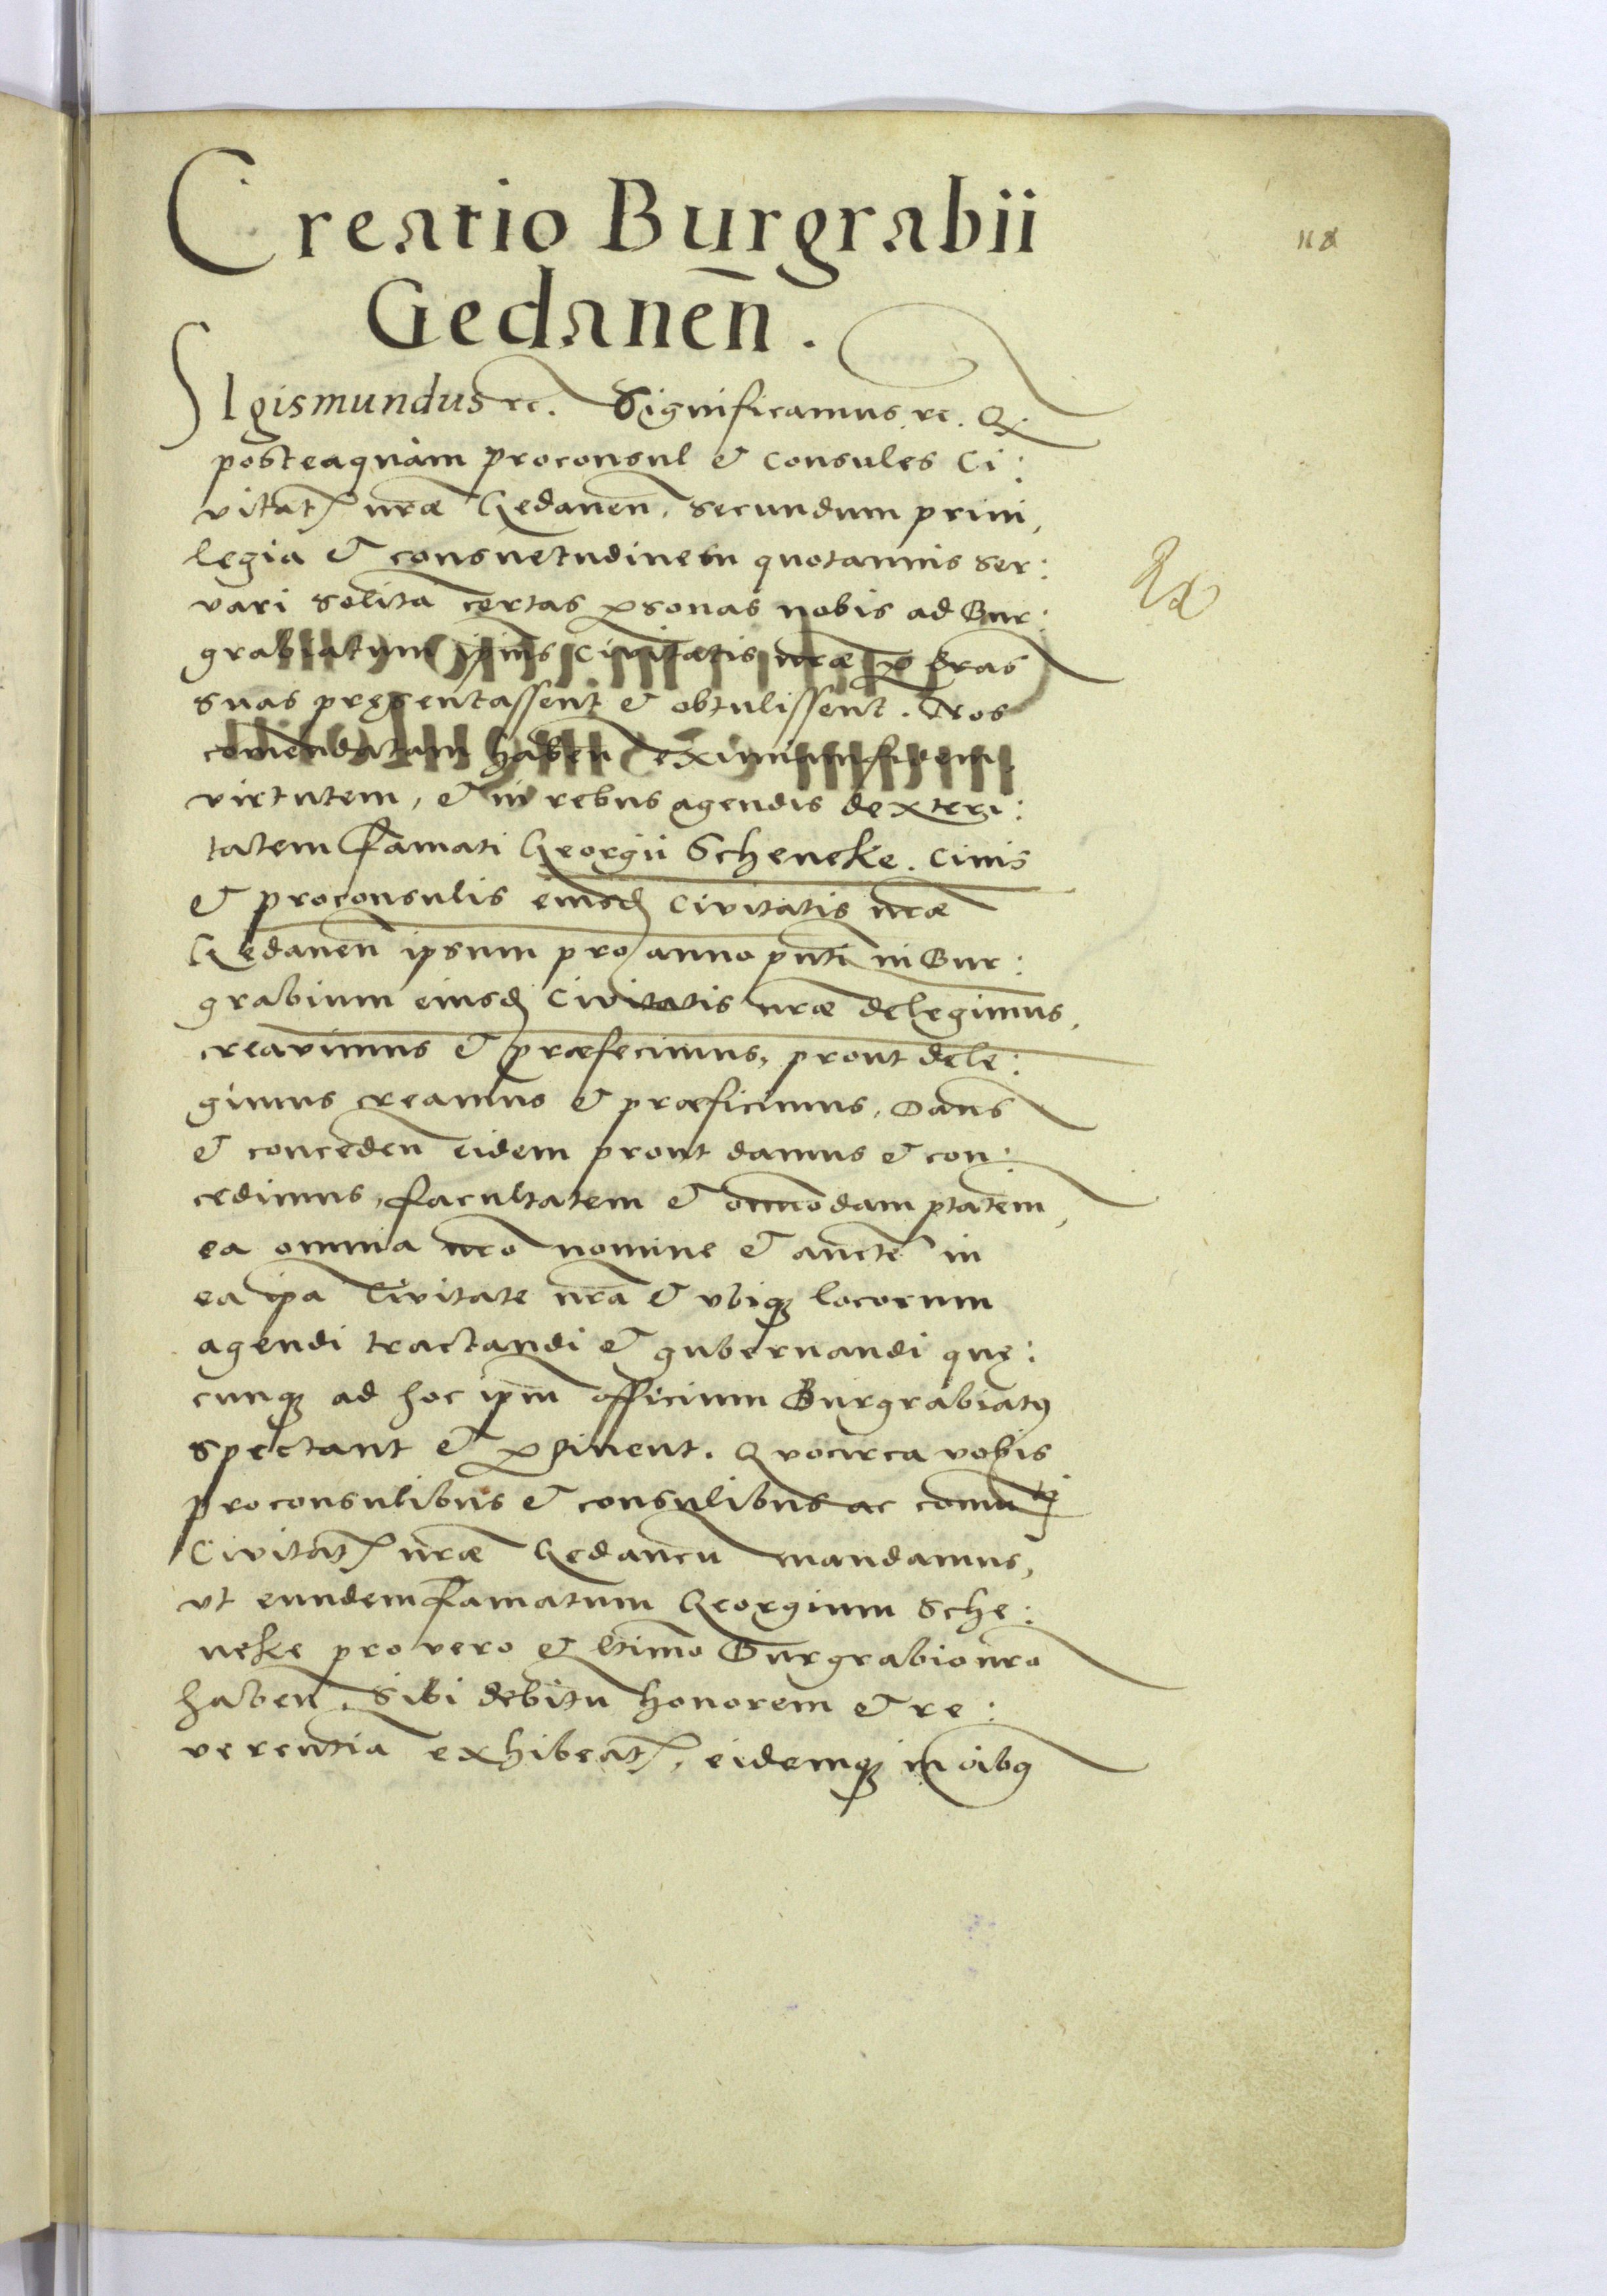 Creatio Burgrabii
Gedanen̄.
SIgismundus ꝛc. Significamus ꝛc. Q
posteaquàm proconsul & Consules Ci:
vitat̄ nr̄æ Gedanen̄, secundum priui,
legia & consuetudinem quotannis ser:
vari solitā certas ꝑsonas nobis ad Bur:
grabiatum ip̄ius Civitatis nr̄æ ꝑ lr̄as
suas pręsentassent & obtulissent. Nos
com̄endatam haben̄ eximiam fidem,
virtutem, & in rebus agendis dexteri:
tatem famati Georgii Scheneke. Ciuis
& proconsulis eiusd Civitatis nr̄æ
Gedanen̄ ipsum pro anno pn̄ti in Bur:
grabium eiusd Civitatis nr̄æ delegimus,
creavimus & præfecimus, prout dele:
gimus creamus & præficimus, Dans
& conceden̄ eidem prout damus & con:
cedimus, facultatem & om̄odam ptātem,
ea omnia nr̄o nomine & aucte in
ea ip̄a Civitate nr̄a & vbiqꝫ locorum
agendi tractandi & gubernandi quę:
cunqꝫ ad hoc ip̄m officium Burgrabiatꝰ
spectant & ꝑtinent. Quocirca vobis
proconsulibus & consulibus ac com̄uti
Civitat̄ nr̄æ Gedanen̄ mandamus,
vt eundem famatum Georgium Sche:
neke pro vero & ltīmo Burgrabio nr̄o
haben̄. Sibi debitū honorem & re:
verentiā exhibeat̄. eidemqꝫ in oībꝰ